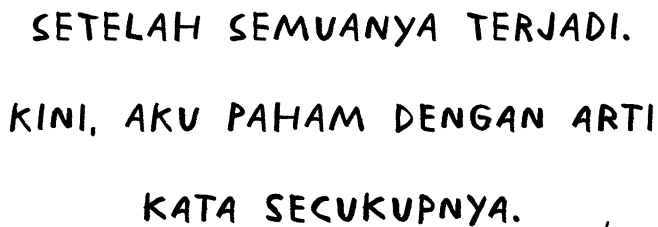 SETELAH SEMUANYA TERJADI.
KINI, AKU PAHAM DENGAN ARTI
KATA SECUKUPNYA.